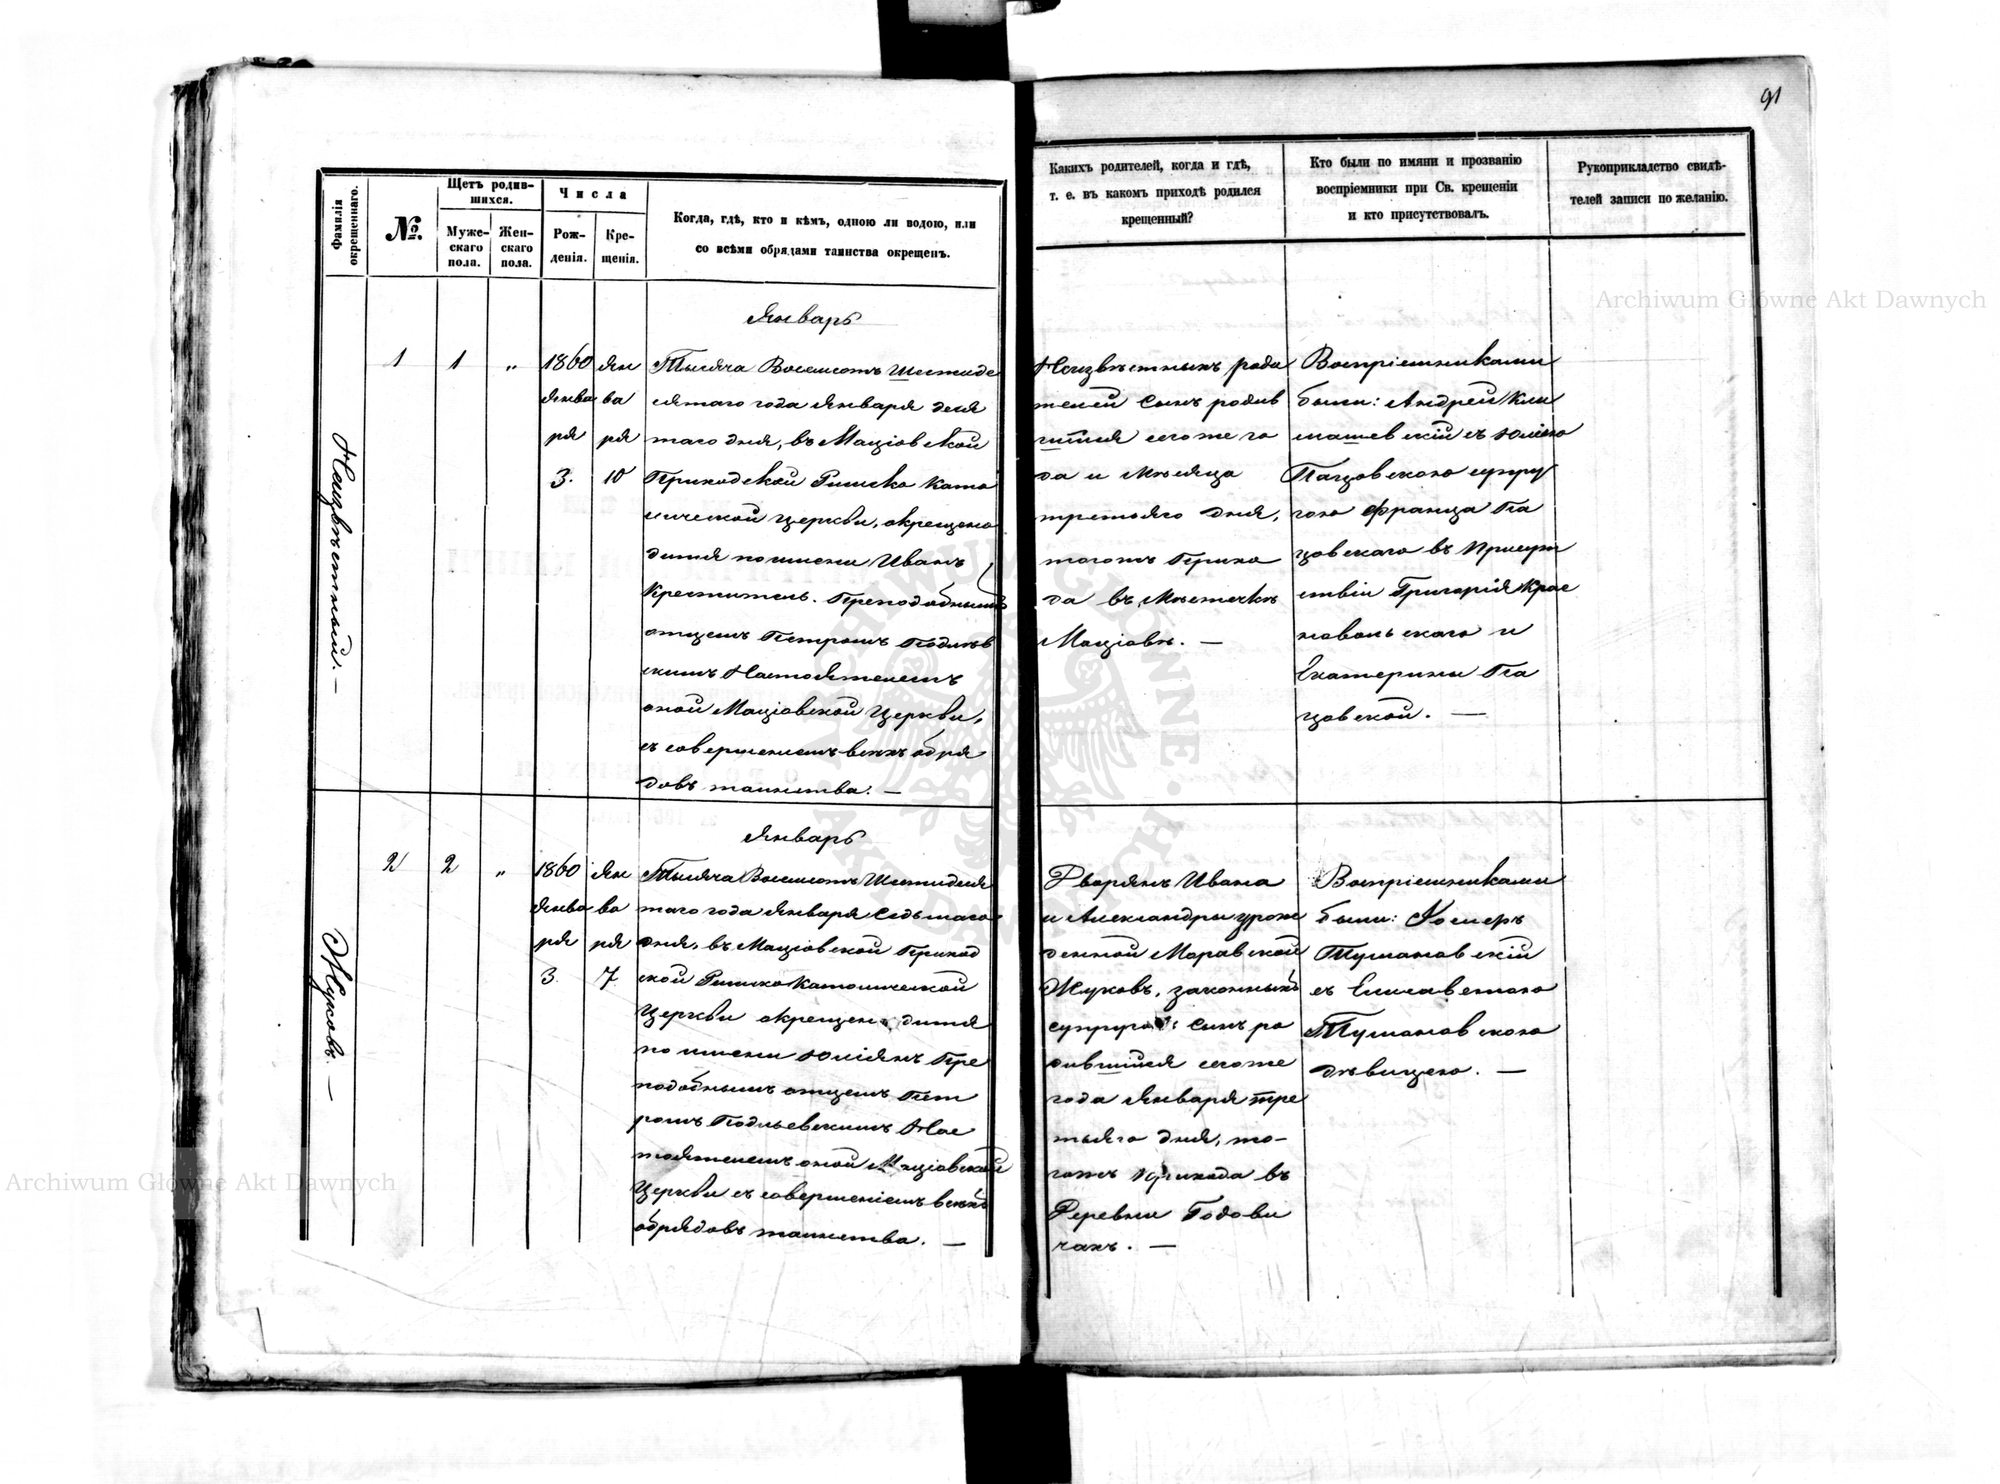 91
Фамилія
окрещеннаго.
№.
Щетъ родив-
шихся.
Муже-
скаго
пола.
Жен-
скаго
пола.
Числа
Рож-
денія.
Кре-
щенія.
Когда, гдѣ, кто и кѣмъ, одною ли водою, или
со всѣми обрядами таинства окрещенъ.
Какихъ родителей, когда и гдѣ,
т. е. въ какомъ приходѣ родился
крещенный?
Кто были по имяни и прозванію
воспріемники при Св. крещеніи
и кто присутствовалъ.
Рукоприкладство свидѣ-
телей записи по желанію.
Неизвѣстный. —
1
1
„
1860
Янва
ря
3.
Ян
ва
ря
10
Январь
Тысяча Восемсотъ Шестиде
сятаго года Января деся
таго дня, въ Маціовской
Приходской Римско Като
лической Церкви, окрещено
дитя по имени Иванъ
Креститель. Преподобнымъ
отцемъ Петромъ Подлѣв
скимъ Настоятелемъ
оной Маціовской Церкви,
съ совершеніемъ всѣхъ обря
довъ таинства. —
Неизвѣстныхъ роди
телей сынъ родив
шійся сего же го
да и мѣсяца
третьяго дня,
тогожъ Прихо
да въ Мѣстечкѣ
Маціовѣ. —
Воспріемниками
были: Андрей Кли
машевскій съ Юліею
Пацовскою супру
гою Франца Па
цовскаго въ Присут
ствіи Григорія Крас
новольскаго и
Екатерины Па
цовской. —
Жуковъ. —
2
2
„
1860
Янва
ря
3
Ян
ва
ря
7
Январь
Тысяча Восемсотъ Шестидеся
таго года Января Седьмаго
дня, въ Маціовской Приход
ской Римско Католической
Церкви окрещено дитя
по имени Юліянъ Пре
подобнымъ отцемъ Пет
ромъ Подльевскимъ Нас
тоятелемъ оной Маціовской
Церкви съ совершеніемъ всѣхъ
обрядовъ таинства. —
Дворянъ Ивана
и Александры урож
денной Моравской
Жуковъ, законныхъ
супруговъ Сынъ ро
дившійся сего же
года Января тре
тьяго дня, то-
гожъ прихода въ
Деревни Годови
чахъ. —
Воспріемниками
были:
Тумановскій
съ Елисаветою
Тумановскою
дѣвицею. —
Archiwum Główne Akt Dawnych
Archiwum Główne Akt Dawnych